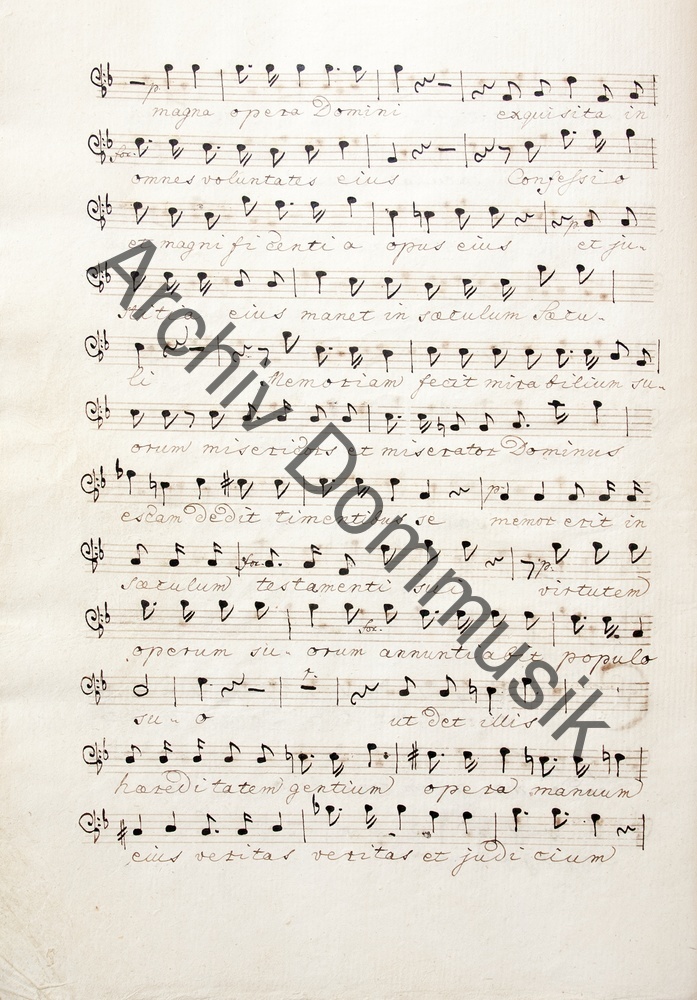 p.
magna opera Domini exquisita in
for.
omnes voluntates eius Confessio
p.
et magnificentia opus eius et ju-
stitia eius manet in sæculum Sæcu-
li Memoriam fecit mirabilium su-
orum misericors et miserator Dominus
p.
escam dedit timentibus se memor erit in
for. p.
sæculum testamenti sui virtutem
for.
operum su- orum annuntiabit populo
su- o ut det illis
hæreditatem gentium opera manuum
eius veritas veritas et judicium
Archiv Dommusik